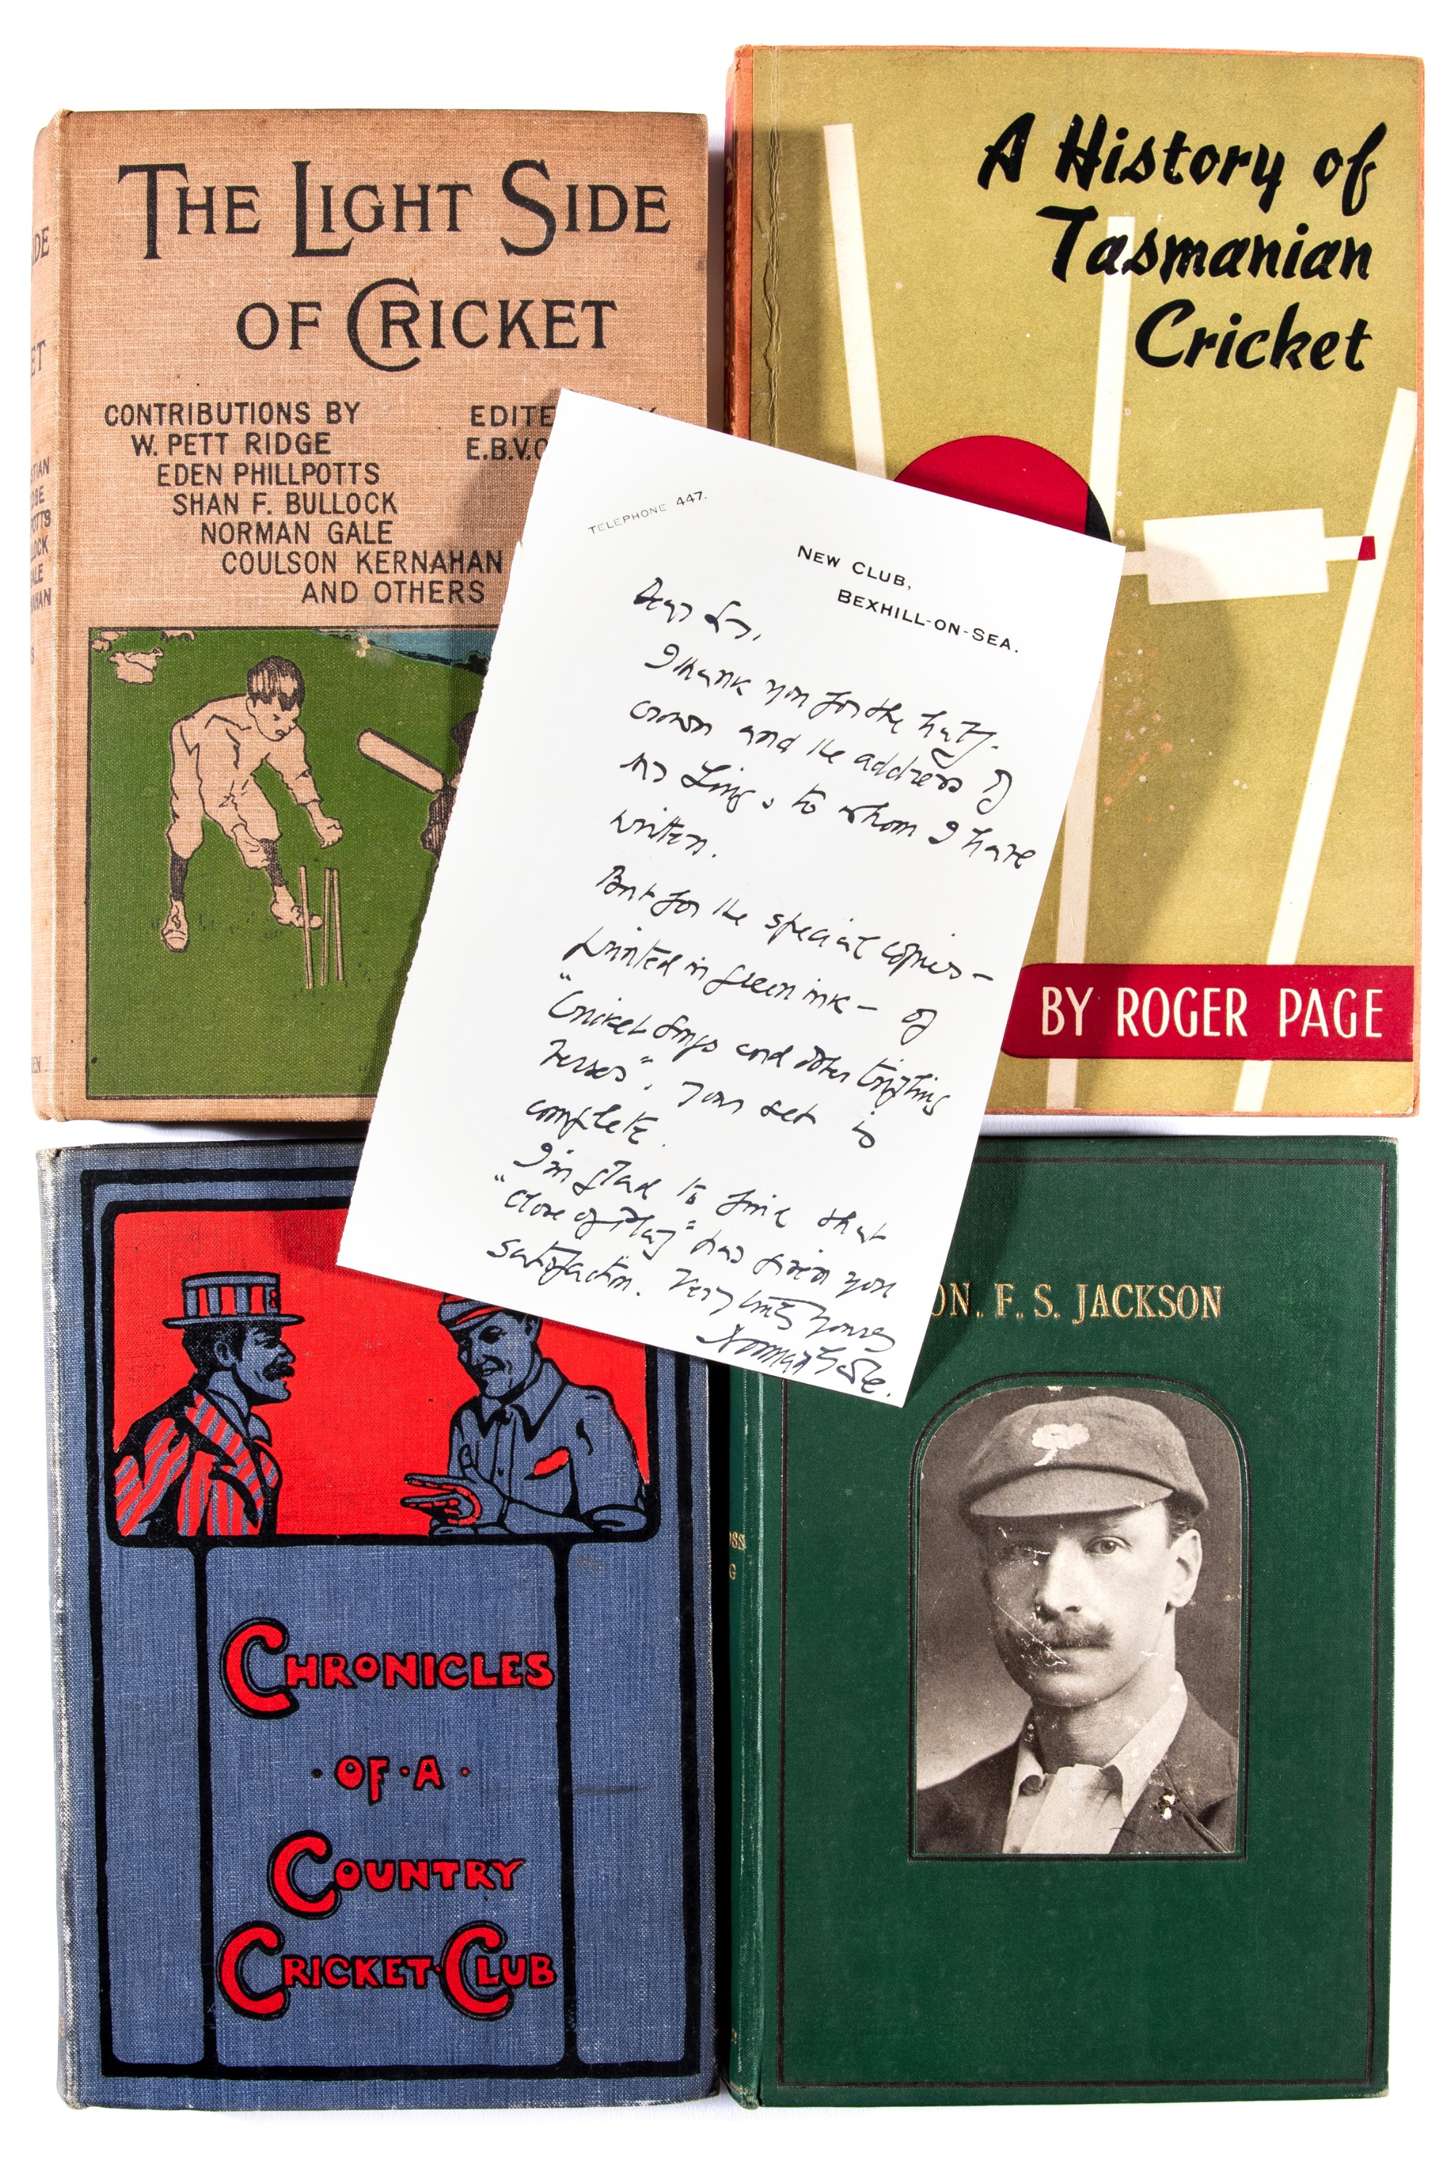 THE LIGHT SIDE
OF CRICKET
CONTRIBUTIONS BY
W. PETT RIDGE
EDEN PHILLPOTTS
SHAN F. BULLOCK
NORMAN GALE
COULSON KERNAHAN
AND OTHERS
EDITE
E.B.V.C
A History of
Tasmanian
Cricket
BY ROGER PAGE
TELEPHONE 447.
NEW CLUB,
BEXHILL-ON-SEA.
Dear Sir,
I thank you for the half-
crown and the address of
to whom I have
written.
But for the special copies –
printed in green ink – of
"Cricket Songs and other Trifling
Verses". Your set is
complete.
I'm glad to find that
"Close of Play" has given you
satisfaction. Very truly yours
Norman Gale.
CHRONICLES
· OF · A ·
COUNTRY
CRICKET · CLUB
ON. F. S. JACKSON